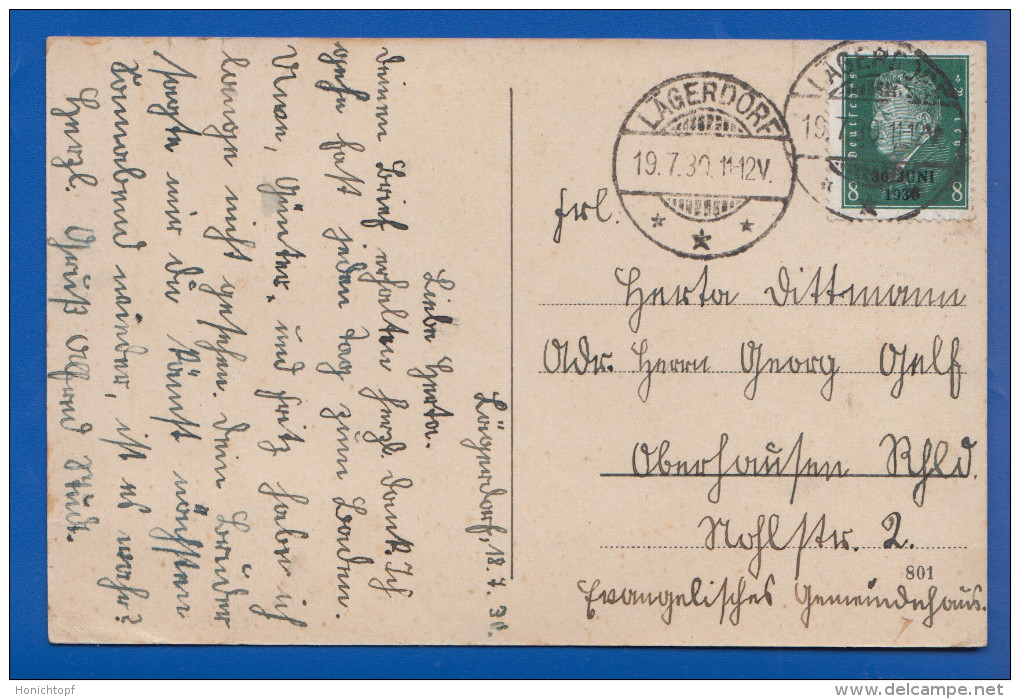 Lägerdorf, 18.7.30.
Liebe Herta.
Deinen Brief erhalten herzl. Dank. Ich
gehe fast jeden Tag zum Baden.
Rosa, Günter, und Fritz habe ich
lange nicht gesehen. Dein Bruder
sagte mir du kämst nächsten
Sonnabend wieder, ist es wahr?
Herzl. Gruß Alfred
LÄGERDORF
19.7.30.11-12V.
LÄGERDORF
19.7.30.11-12V
Deutsches Reich
30. JUNI
1930
8 8
Frl.
Herta Dittmann
Adr. Herrn Georg Gelf
Oberhausen Rhld.
Nohlstr. 2.
801
Evangelisches Gemeindehaus.
Honichtopf
delcampe.net